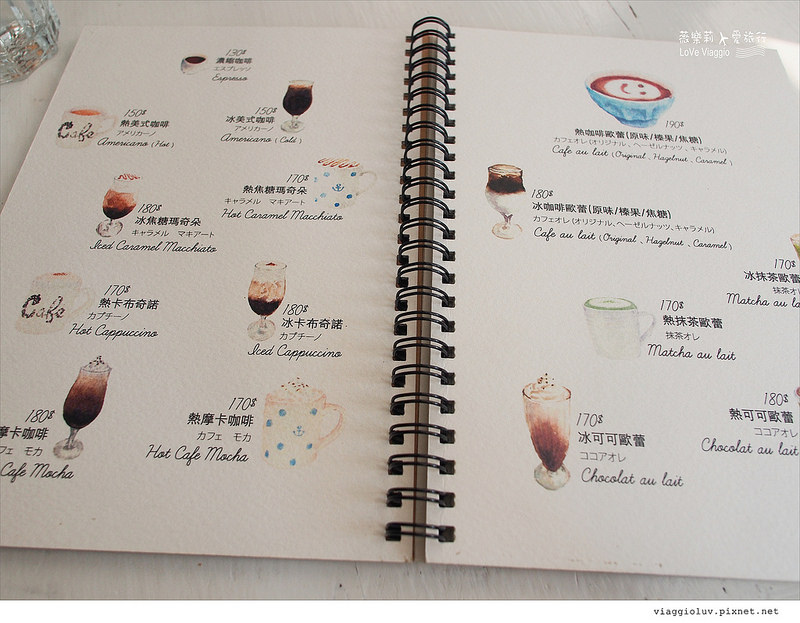 130$
濃縮咖啡
エスプレッソ
Espresso
150$
熱美式咖啡
アメリカーノ
Americano (Hot)
150$
冰美式咖啡
アメリカーノ
Americano (Cold)
Cafe
170$
熱焦糖瑪奇朵
キャラメル マキアート
Hot Caramel Macchiato
180$
冰焦糖瑪奇朵
キャラメル マキアート
Iced Caramel Macchiato
Cafe
170$
熱卡布奇諾
カプチーノ
Hot Cappuccino
180$
冰卡布奇諾
カプチーノ
Iced Cappuccino
180$
摩卡咖啡
フェ モカ
Cafe Mocha
170$
熱摩卡咖啡
カフェ モカ
Hot Cafe Mocha
薇樂莉 愛旅行
LoVe Viaggio
190$
熱咖啡歐蕾(原味/榛果/焦糖)
カフェオレ(オリジナル、ヘーゼルナッツ、キャラメル)
Cafe au lait (Original, Hagelnut, Caramel)
180$
冰咖啡歐蕾(原味/榛果/焦糖)
カフェオレ(オリジナル、ヘーゼルナッツ、キャラメル)
Cafe au lait (Original, Hagelnut, Caramel)
170$
冰抹茶歐蕾
抹茶オレ
Matcha au la
170$
熱抹茶歐蕾
抹茶オレ
Matcha au lait
180$
熱可可歐蕾
ココアオレ
Chocolat au lait
170$
冰可可歐蕾
ココアオレ
Chocolat au lait
viaggioluv.pixnet.net